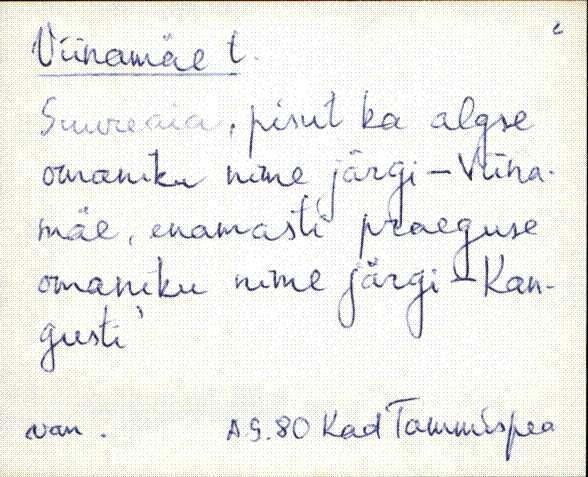 Viinamäe t.
Suureaia, pisut ka algse
omaniku nime järgi – Viina-
mäe, enamasti praeguse
omaniku nime järgi – Kan-
gusti'
van. A.G. 80 Kad Tammispea